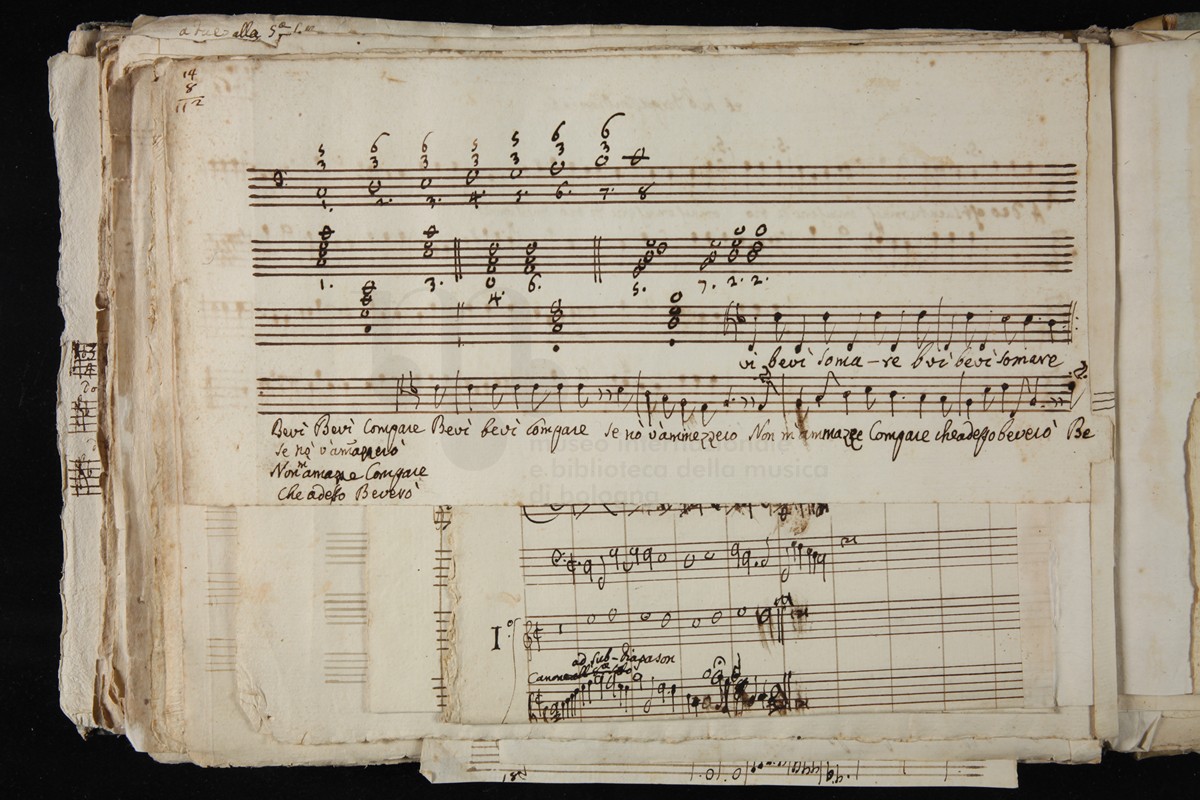 alla 5ª
14
8
112
5 6 6 5 5 6 6
3 3 3 3 3 3 3
1. 2. 3. 4. 5. 6. 7. 8
1. 3. 4. 6. 5. 7. 2. 2.
vì bevì soma-re bvì bevì somare
Bevì Bevì Compare Bevì bevì Compare se nò v'ammezzerò Non m'ammazze Compare che adesso beverò Be
se nò v'ammazzerò
Non m'amazze Compare
che adesso Beverò
museo internazionale
e biblioteca della musica
di bologna
I°
ad sub-diapason
Canone